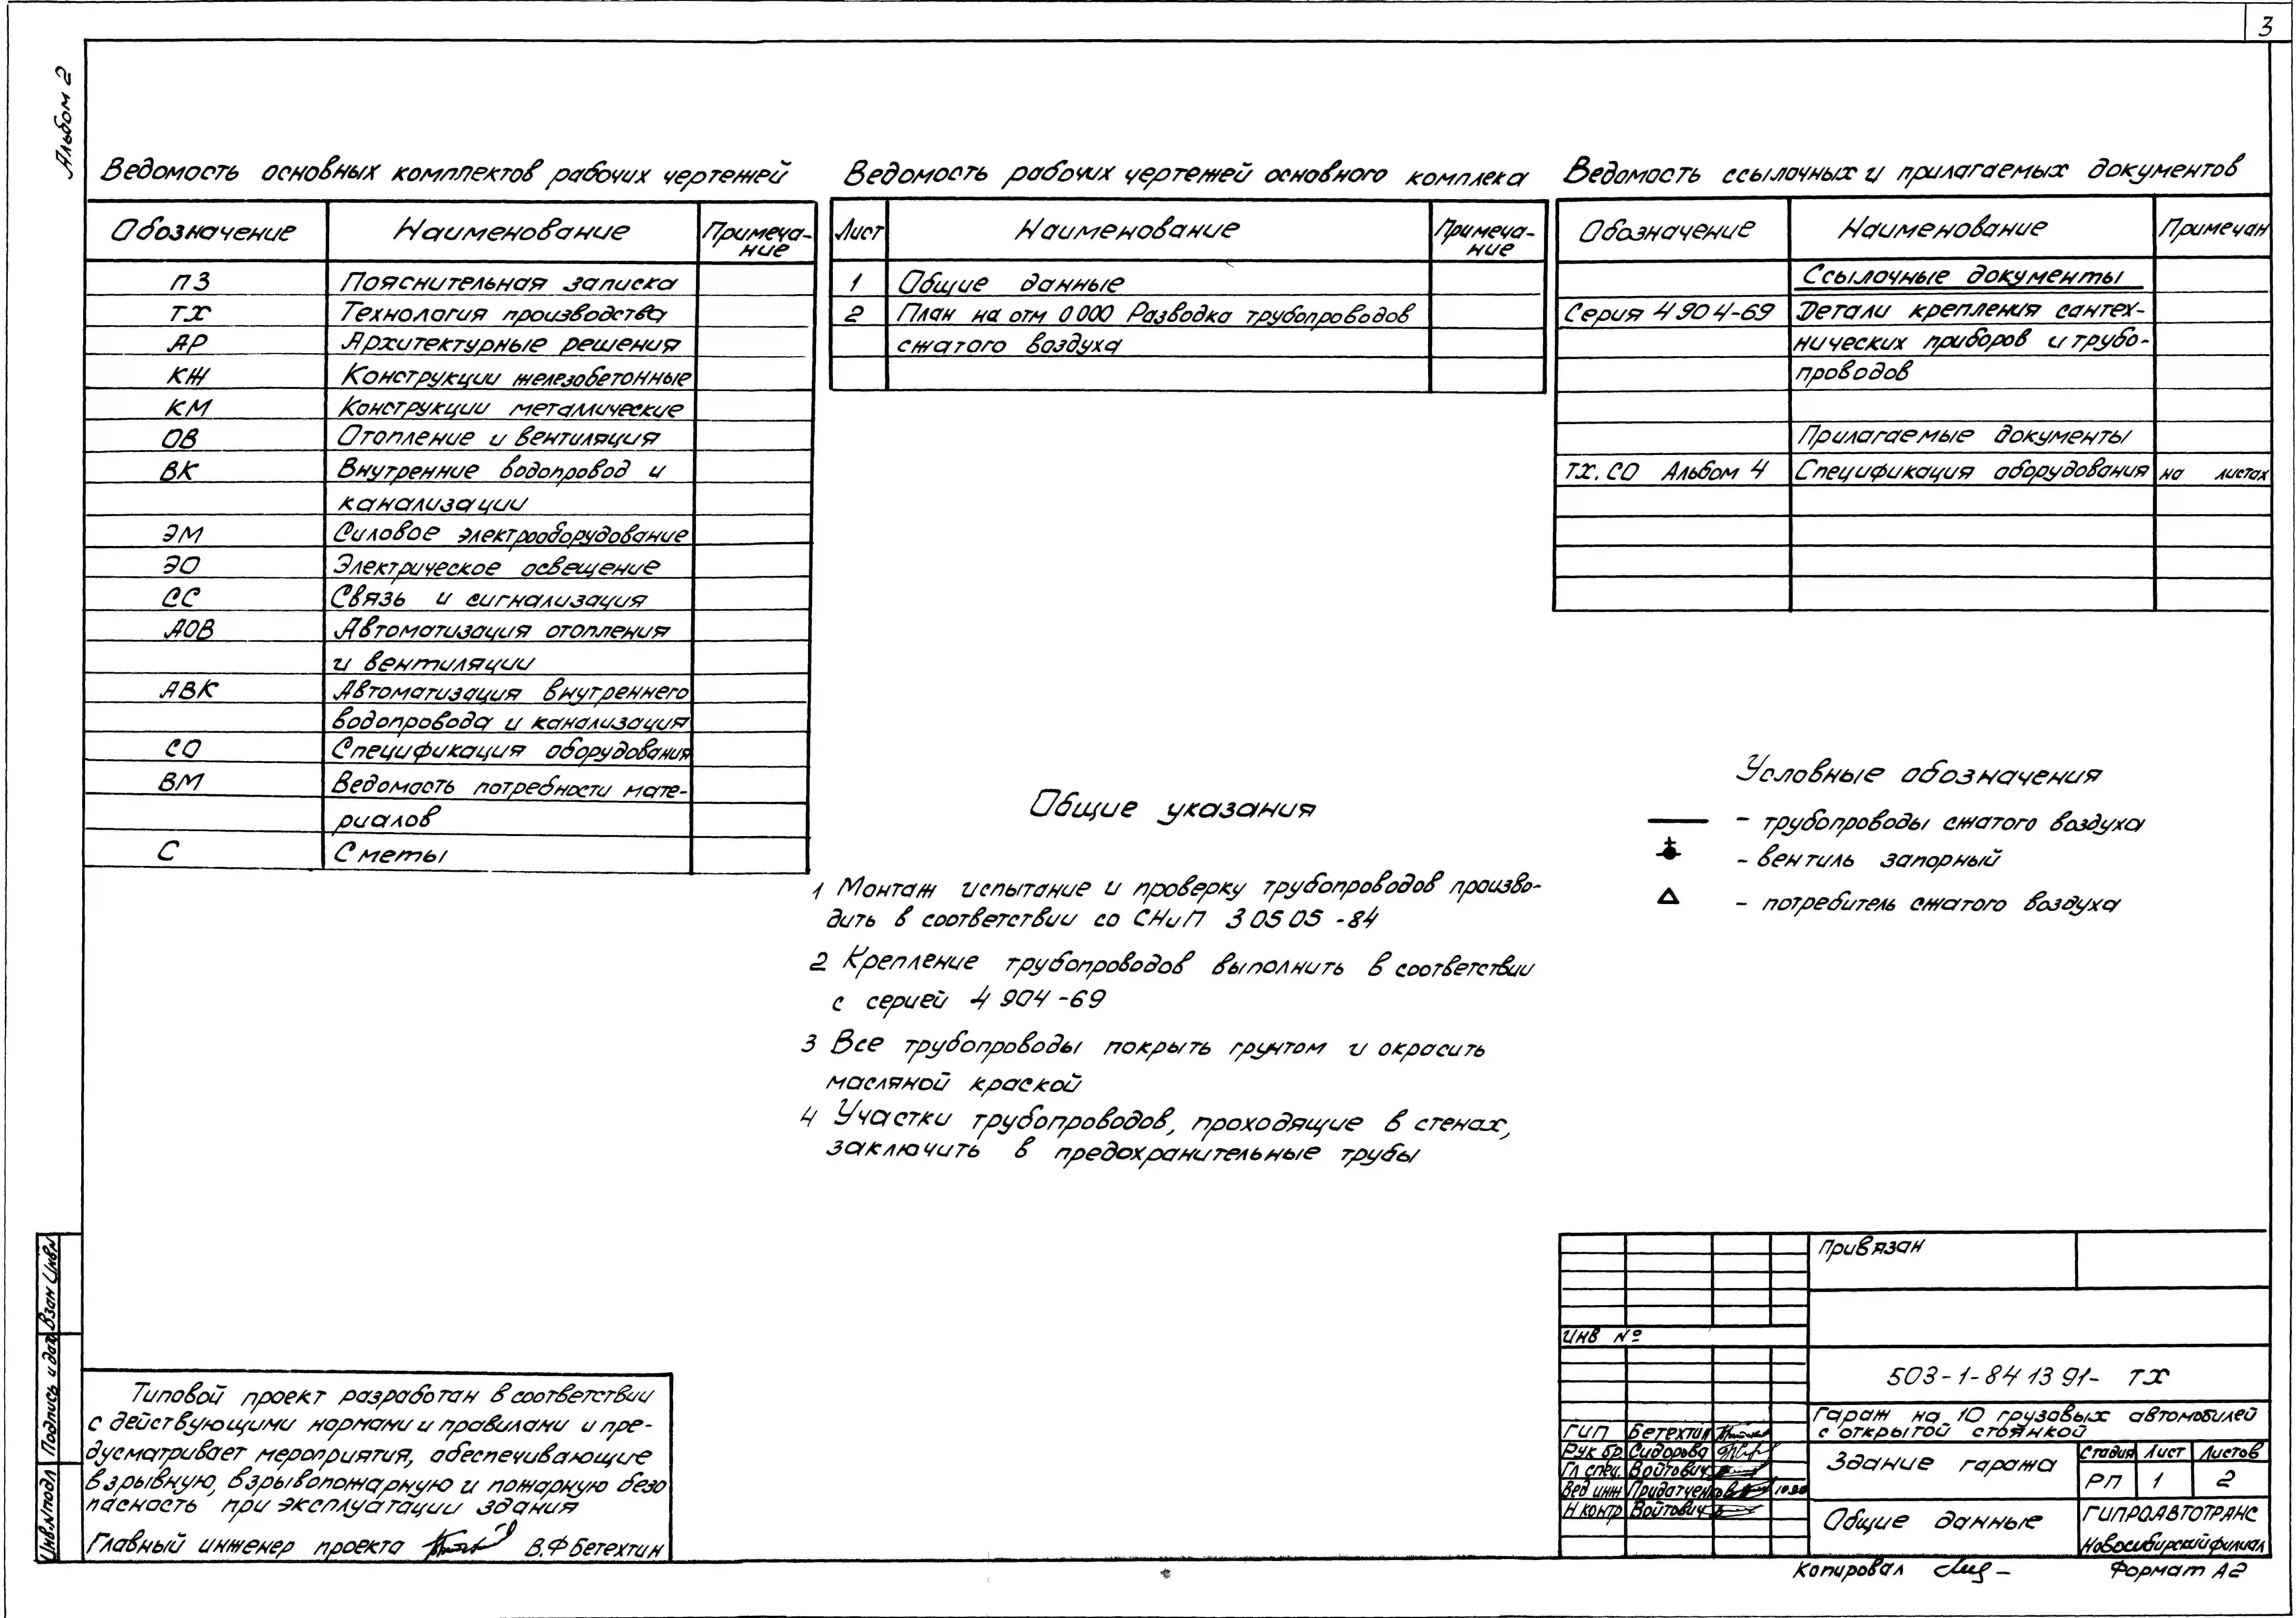 3
Альбом 2
Ведомость основных комплектов рабочих чертежей
Обозначение Наименование Примеча-
ние
ПЗ Пояснительная записка
ТХ Технология производства
АР Архитектурные решения
КЖ Конструкции железобетонные
КМ Конструкции металлические
ОВ Отопление и вентиляция
ВК Внутренние водопровод и
канализации
ЭМ Силовое электрооборудование
ЭО Электрическое освещение
СС Связь и сигнализация
АОВ Автоматизация отопления
и вентиляции
АВК Автоматизация внутреннего
водопровода и канализация
СО Спецификация оборудования
ВМ Ведомость потребности мате-
риалов
С Сметы
Ведомость рабочих чертежей основного комплека
Лист Наименование Примеча-
ние
1 Общие данные
2 План на отм 0 000 Разводка трубопроводов
сжатого воздуха
Ведомость ссылочных и прилагаемых документов
Обозначение Наименование Примечан
Ссылочные документы
Серия 4 904-69 Детали крепления сантех-
нических приборов и трубо-
проводов
Прилагаемые документы
ТХ. СО Альбом 4 Спецификация оборудования на листах
Общие указания
1 Монтаж испытание и проверку трубопроводов произво-
дить в соответствии со СНиП 3 05 05 -84
2 Крепление трубопроводов выполнить в соответствии
с серией 4 904 -69
3 Все трубопроводы покрыть грунтом и окрасить
масляной краской
4 Участки трубопроводов, проходящие в стенах,
заключить в предохранительные трубы
Условные обозначения
- трубопроводы сжатого воздуха
- вентиль запорный
- потребитель сжатого воздуха
Типовой проект разработан в соответствии
с действующими нормами и правилами и пре-
дусматривает мероприятия, обеспечивающие
взрывную, взрывопожарную и пожарную безо
пасность при эксплуатации здания
Главный инженер проекта В.Ф Бетехтин
Инв.№подл Подпись и дата Взам Инв.№
Привязан
Инв №
503-1-84 13 91- ТХ
Гараж на 10 грузовых автомобилей
с открытой стоянкой
ГИП Бетехтин
Рук бр Сидорова
Гл спец. Войтович
Вед инж Придатченко 10.90
Н контр Войтович
Здание гаража
Стадия Лист Листов
РП 1 2
Общие данные
ГИПРОАВТОТРАНС
Новосибирский филиал
Копировал
Формат А2